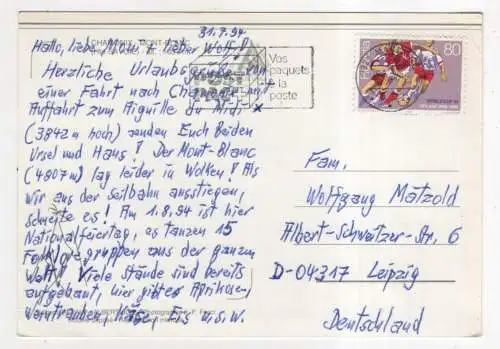 31.7.94
CHAMONIX - MONT-BLANC
Hallo, liebe Mani + lieber Wolf!
Herzliche Urlaubsgrüße von
einer Fahrt nach Chamonix mit
Auffahrt zum Aiguille du Midi
(3842 m hoch) senden Euch Beiden
Ursel und Hans! Der Mont-Blanc
(4807 m) lag leider in Wolken! Als
wir aus der Seilbahn ausstiegen,
schneite es! Am 1.8.94 ist hier
Nationalfeiertag, es tanzen 15
Folkloregruppen aus der ganzen
Welt! Viele Stände sind bereits
aufgebaut, hier gibt es Aprikosen,
Weintrauben, Käse, Eis u.s.w.
Vos
paquets
à la
poste
80
Fam.
Wolfgang Mätzold
Albert-Schweitzer-Str. 6
D-04317 Leipzig
Deutschland